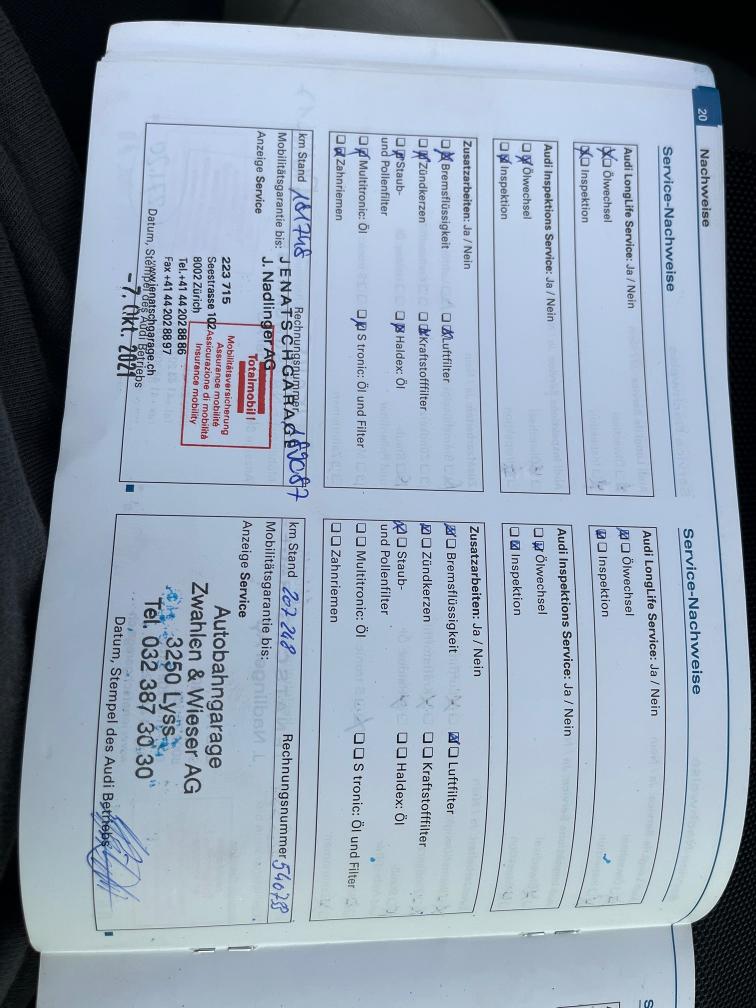 20
Nachweise
Service-Nachweise
Audi LongLife Service: Ja / Nein
Ölwechsel
Inspektion
Audi Inspektions Service: Ja / Nein
Ölwechsel
Inspektion
Zusatzarbeiten: Ja / Nein
Bremsflüssigkeit
Luftfilter
Zündkerzen
Kraftstofffilter
Staub-
und Pollenfilter
Haldex: Öl
Multitronic: Öl
S tronic: Öl und Filter
Zahnriemen
km Stand 181748
Rechnungsnummer
Mobilitätsgarantie bis:
Anzeige Service
JENATSCHGARAGE
J. Nadlinger AG
223 715
Seestrasse 102
8002 Zürich
Tel. +41 44 202 88 86
Fax +41 44 202 88 97
www.jenatschgarage.ch
Totalmobil!
Mobilitätsversicherung
Assurance mobilité
Assicurazione di mobilità
Insurance mobility
Datum, Stempel des Audi Betriebs
-7. Okt. 2021
Service-Nachweise
Audi LongLife Service: Ja / Nein
Ölwechsel
Inspektion
Audi Inspektions Service: Ja / Nein
Ölwechsel
Inspektion
Zusatzarbeiten: Ja / Nein
Bremsflüssigkeit
Luftfilter
Zündkerzen
Kraftstofffilter
Staub-
und Pollenfilter
Haldex: Öl
Multitronic: Öl
S tronic: Öl und Filter
Zahnriemen
km Stand 207 248
Rechnungsnummer 540788
Mobilitätsgarantie bis:
Anzeige Service
Autobahngarage
Zwahlen & Wieser AG
3250 Lyss
Tel. 032 387 30 30
Datum, Stempel des Audi Betriebs